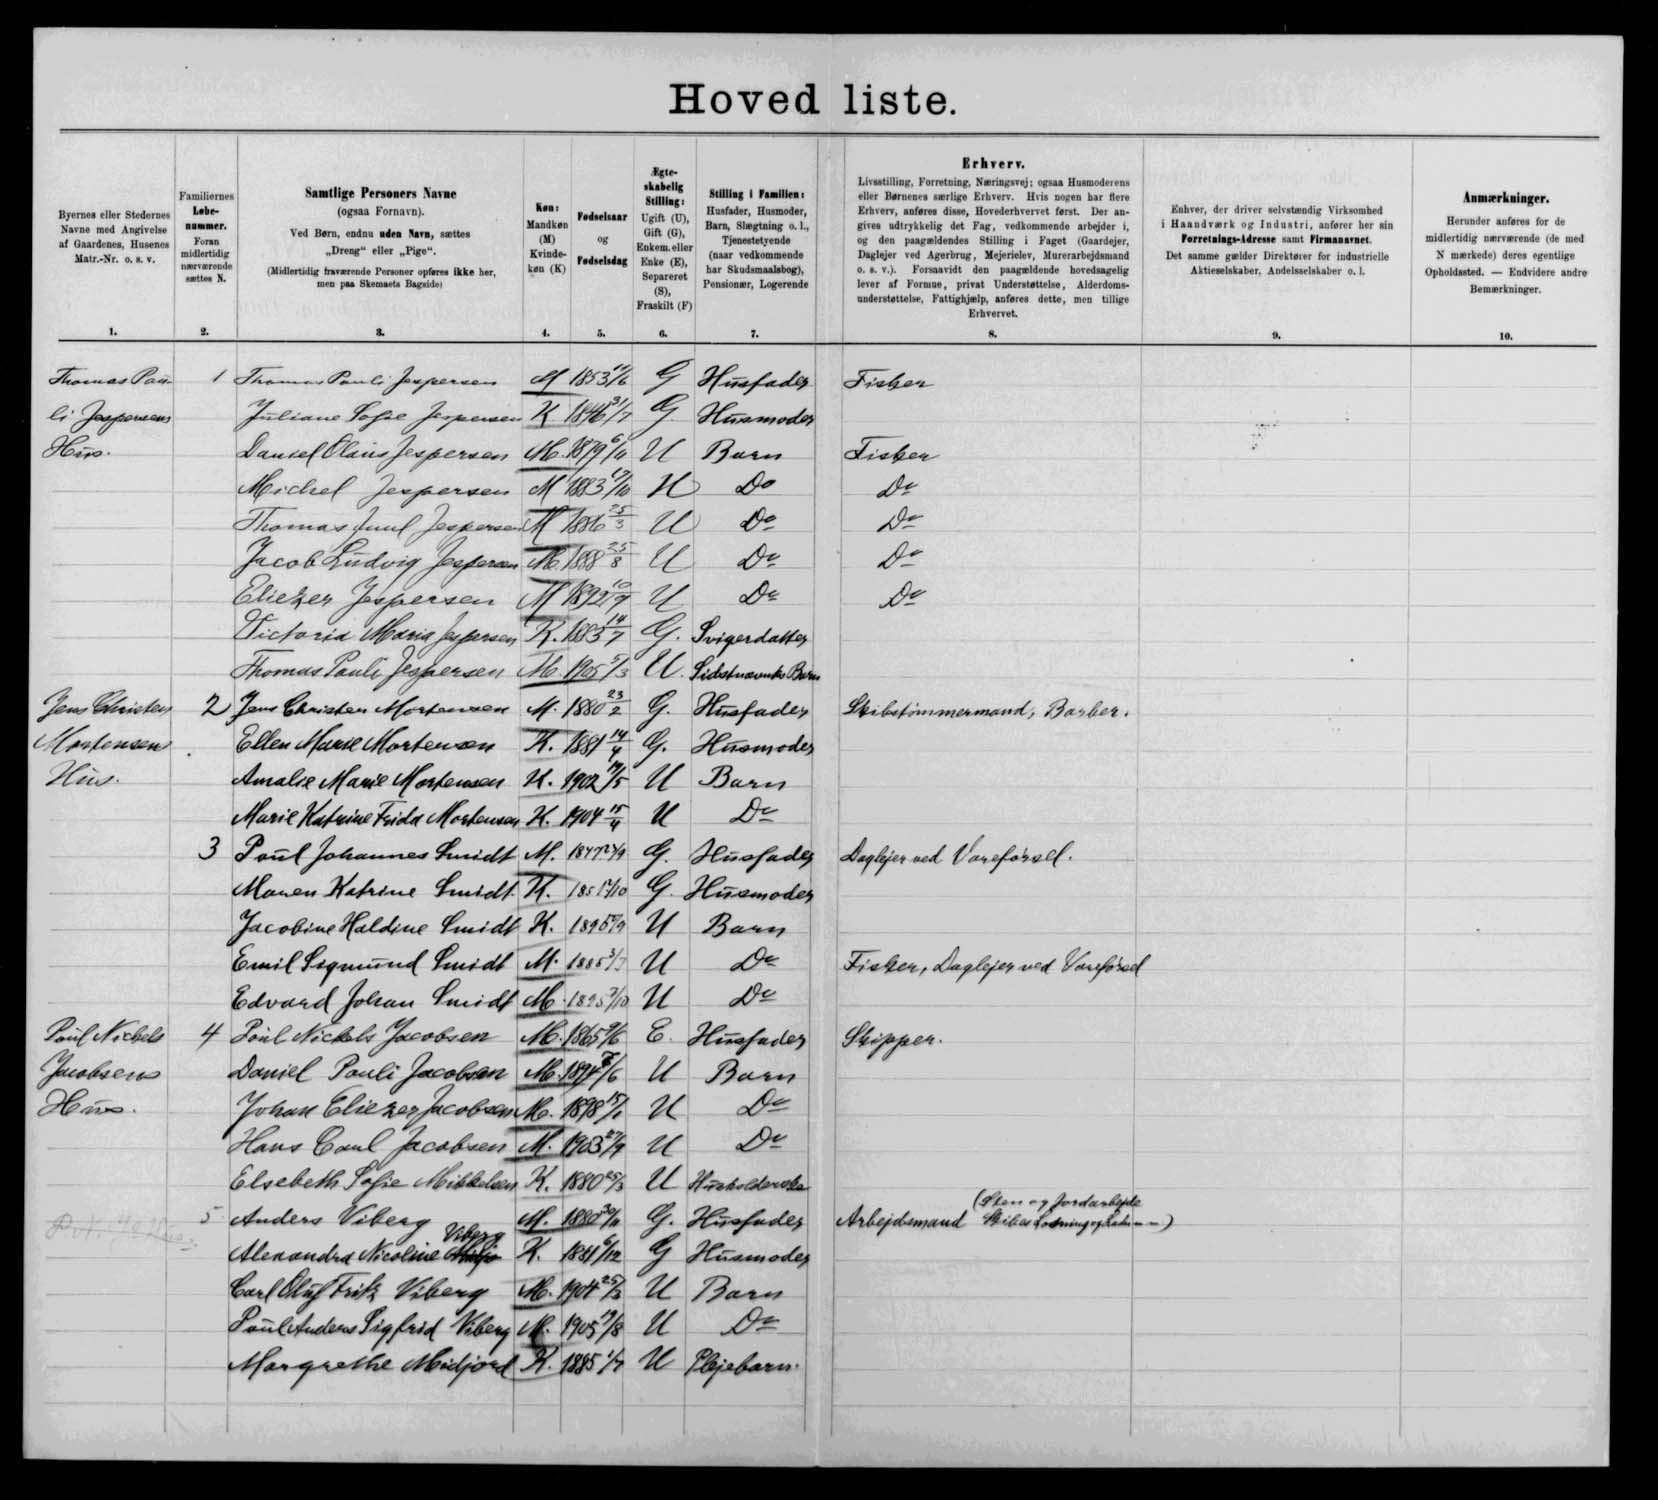 Hoved liste.
Byernes eller Stedernes Navne med Angivelse af Gaardenes, Husenes Matr.-Nr. o. s. v.
1.
Familiernes Løbenummer. Foran midlertidig nærværende sættes N.
2.
Samtlige Personers Navne
(ogsaa Fornavn).
Ved Børn, endnu uden Navn, sættes „Dreng“ eller „Pige“.
(Midlertidig fraværende Personer opføres ikke her, men paa Skemaets Bagside)
3.
Køn: Mandkøn (M) Kvindekøn (K)
4.
Fødselsaar og Fødselsdag
5.
Ægteskabelig Stilling: Ugift (U), Gift (G), Enkem. eller Enke (E), Separeret (S), Fraskilt (F)
6.
Stilling i Familien: Husfader, Husmoder, Barn, Slægtning o. l., Tjenestetyende (naar vedkommende har Skudsmaalsbog), Pensionær, Logerende
7.
Erhverv.
Livsstilling, Forretning, Næringsvej; ogsaa Husmoderens eller Børnenes særlige Erhverv. Hvis nogen har flere Erhverv, anføres disse, Hovederhvervet først. Der angives udtrykkelig det Fag, vedkommende arbejder i, og den paagældendes Stilling i Faget (Gaardejer, Daglejer ved Agerbrug, Mejerielev, Murerarbejdsmand o. s. v.). Forsaavidt den paagældende hovedsagelig lever af Formue, privat Understøttelse, Alderdomsunderstøttelse, Fattighjælp, anføres dette, men tillige Erhvervet.
8.
Enhver, der driver selvstændig Virksomhed i Haandværk og Industri, anfører her sin Forretnings-Adresse samt Firmanavnet. Det samme gælder Direktører for industrielle Aktieselskaber, Andelsselskaber o. l.
9.
Anmærkninger.
Herunder anføres for de midlertidig nærværende (de med N mærkede) deres egentlige Opholdssted. — Endvidere andre Bemærkninger.
10.
Thomas Pau- 1 Thomas Pauli Jespersen M 1853 G Husfader Fisker
li Jespersens Juliane Sofie Jespersen K 1846 31/7 G Husmoder
Hus. Daniel Olaus Jespersen M. 1879 6/11 U Barn Fisker
Michel Jespersen M 1883 17/10 U Do Do
Thomas Juul Jespersen M 1886 25/3 U Do Do
Jacob Ludvig Jespersen M. 1888 25/8 U Do Do
Eliezer Jespersen M 1892 U Do Do
Victoria Maria Jespersen K. 1883 14/7 G. Svigerdatter
Thomas Pauli Jespersen M. 1905 5/3 U. Sidstnævntes Barn
Jens Christen 2 Jens Christen Mortensen M. 1880 23/2 G. Husfader Skibstømmermand, Barber.
Mortensens Ellen Marie Mortensen K. 1881 14/4 G. Husmoder
Hus. Amalie Marie Mortensen K. 1902 U Barn
Marie Katrine Frida Mortensen K. 1904 15/4 U Do
3 Poul Johannes Smidt M. 1847 G. Husfader Daglejer ved Vareførsel.
Maren Katrine Smidt K. 1851 G. Husmoder
Jacobine Haldine Smidt K. U Barn
Emil Sigmund Smidt M. 1885 U Do Fisker, Daglejer ved Vareførsel
Edvard Johan Smidt M. 1895 U Do
Poul Nickels 4 Poul Nickels Jacobsen M. 1865 E. Husfader Skipper.
Jacobsens Daniel Pauli Jacobsen M. 1894 U Barn
Hus. Johan Eliezer Jacobsen M. 1898 15/1 U Do
Hans Carl Jacobsen M. 1903 27/9 U Do
Elsebeth Sofie Mikkelsen K. 1880 25/3 U Husholderske
5 Anders Viberg M. 1880 G. Husfader Arbejdsmand (Sten og Jordarbejde
Alexandra Nicoline Viberg K. 1881 6/12 G Husmoder
Carl Oluf Frik Viberg M. 1904 25/3 U Barn
Poul Anders Sigfrid Viberg M. 1905 19/8 U Do
Margrethe Midjord K. 1885 1/7 U Plejebarn.